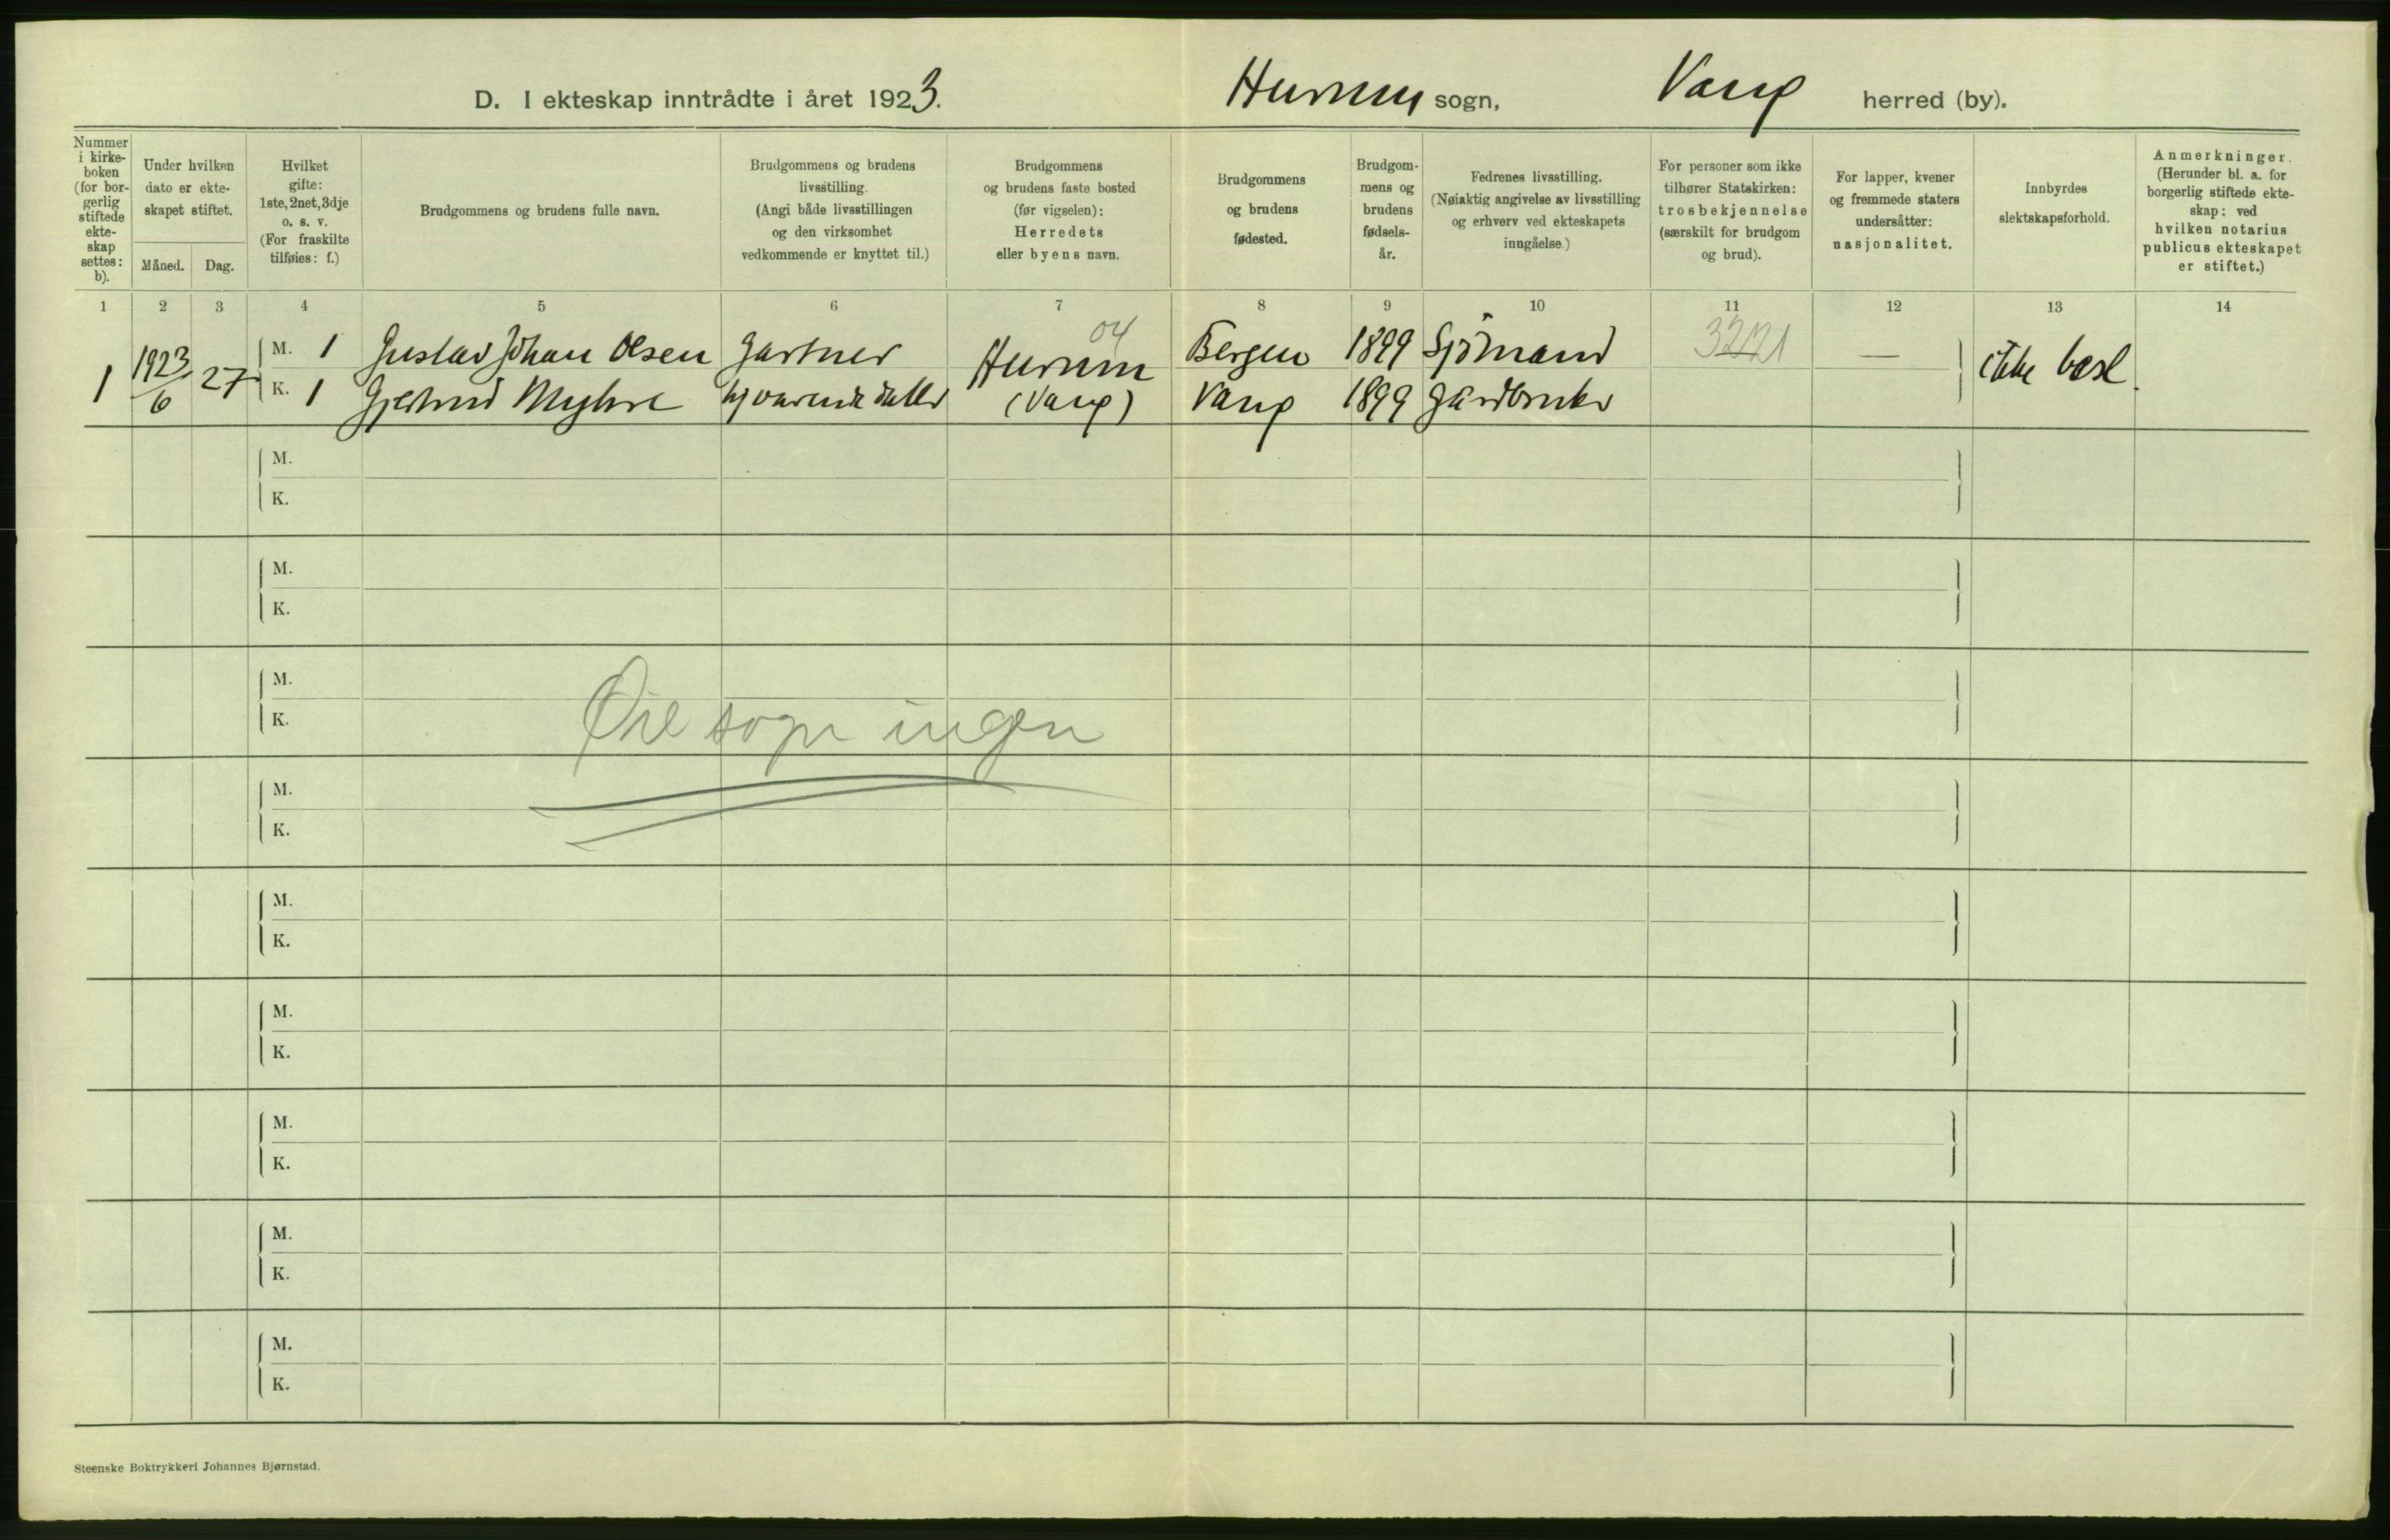 D. I ekteskap inntrådte i året 1923. Hurum sogn, Vang herred (by).
Nummer i kirke-boken (for bor-gerlig stiftede ekte-skap settes: b).
Under hvilken dato er ekte-skapet stiftet.
Måned. Dag.
Hvilket gifte: 1ste, 2net, 3dje o. s. v. (For fraskilte tilføies: f.)
Brudgommens og brudens fulle navn.
Brudgommens og brudens livsstilling. (Angi både livsstillingen og den virksomhet vedkommende er knyttet til.)
Brudgommens og brudens faste bosted (før vigselen): Herredets eller byens navn.
Brudgommens og brudens fødested.
Brudgom-mens og brudens fødsels-år.
Fedrenes livsstilling. (Nøiaktig angivelse av livsstilling og erhverv ved ekteskapets inngåelse.)
For personer som ikke tilhører Statskirken: trosbekjennelse (særskilt for brudgom og brud).
For lapper, kvener og fremmede staters undersåtter: nasjonalitet.
Innbyrdes slektskapsforhold.
Anmerkninger. (Herunder bl. a. for borgerlig stiftede ekte-skap: ved hvilken notarius publicus ekteskapet er stiftet.)
1 2 3 4 5 6 7 8 9 10 11 12 13 14
04
1 1923/6 27 M. 1 Gustav Johan Olsen Gartner Hurum Bergen 1899 Sjömand — ikke besl.
K. 1 Gjertrud Myhre hjemmedatter (Vang) Vang 1899 Gårdbruker
M.
K.
M.
K.
M.
K.
Øie sogn ingen
M.
K.
M.
K.
M.
K.
M.
K.
M.
K.
M.
K.
Steenske Boktrykkeri Johannes Bjørnstad.